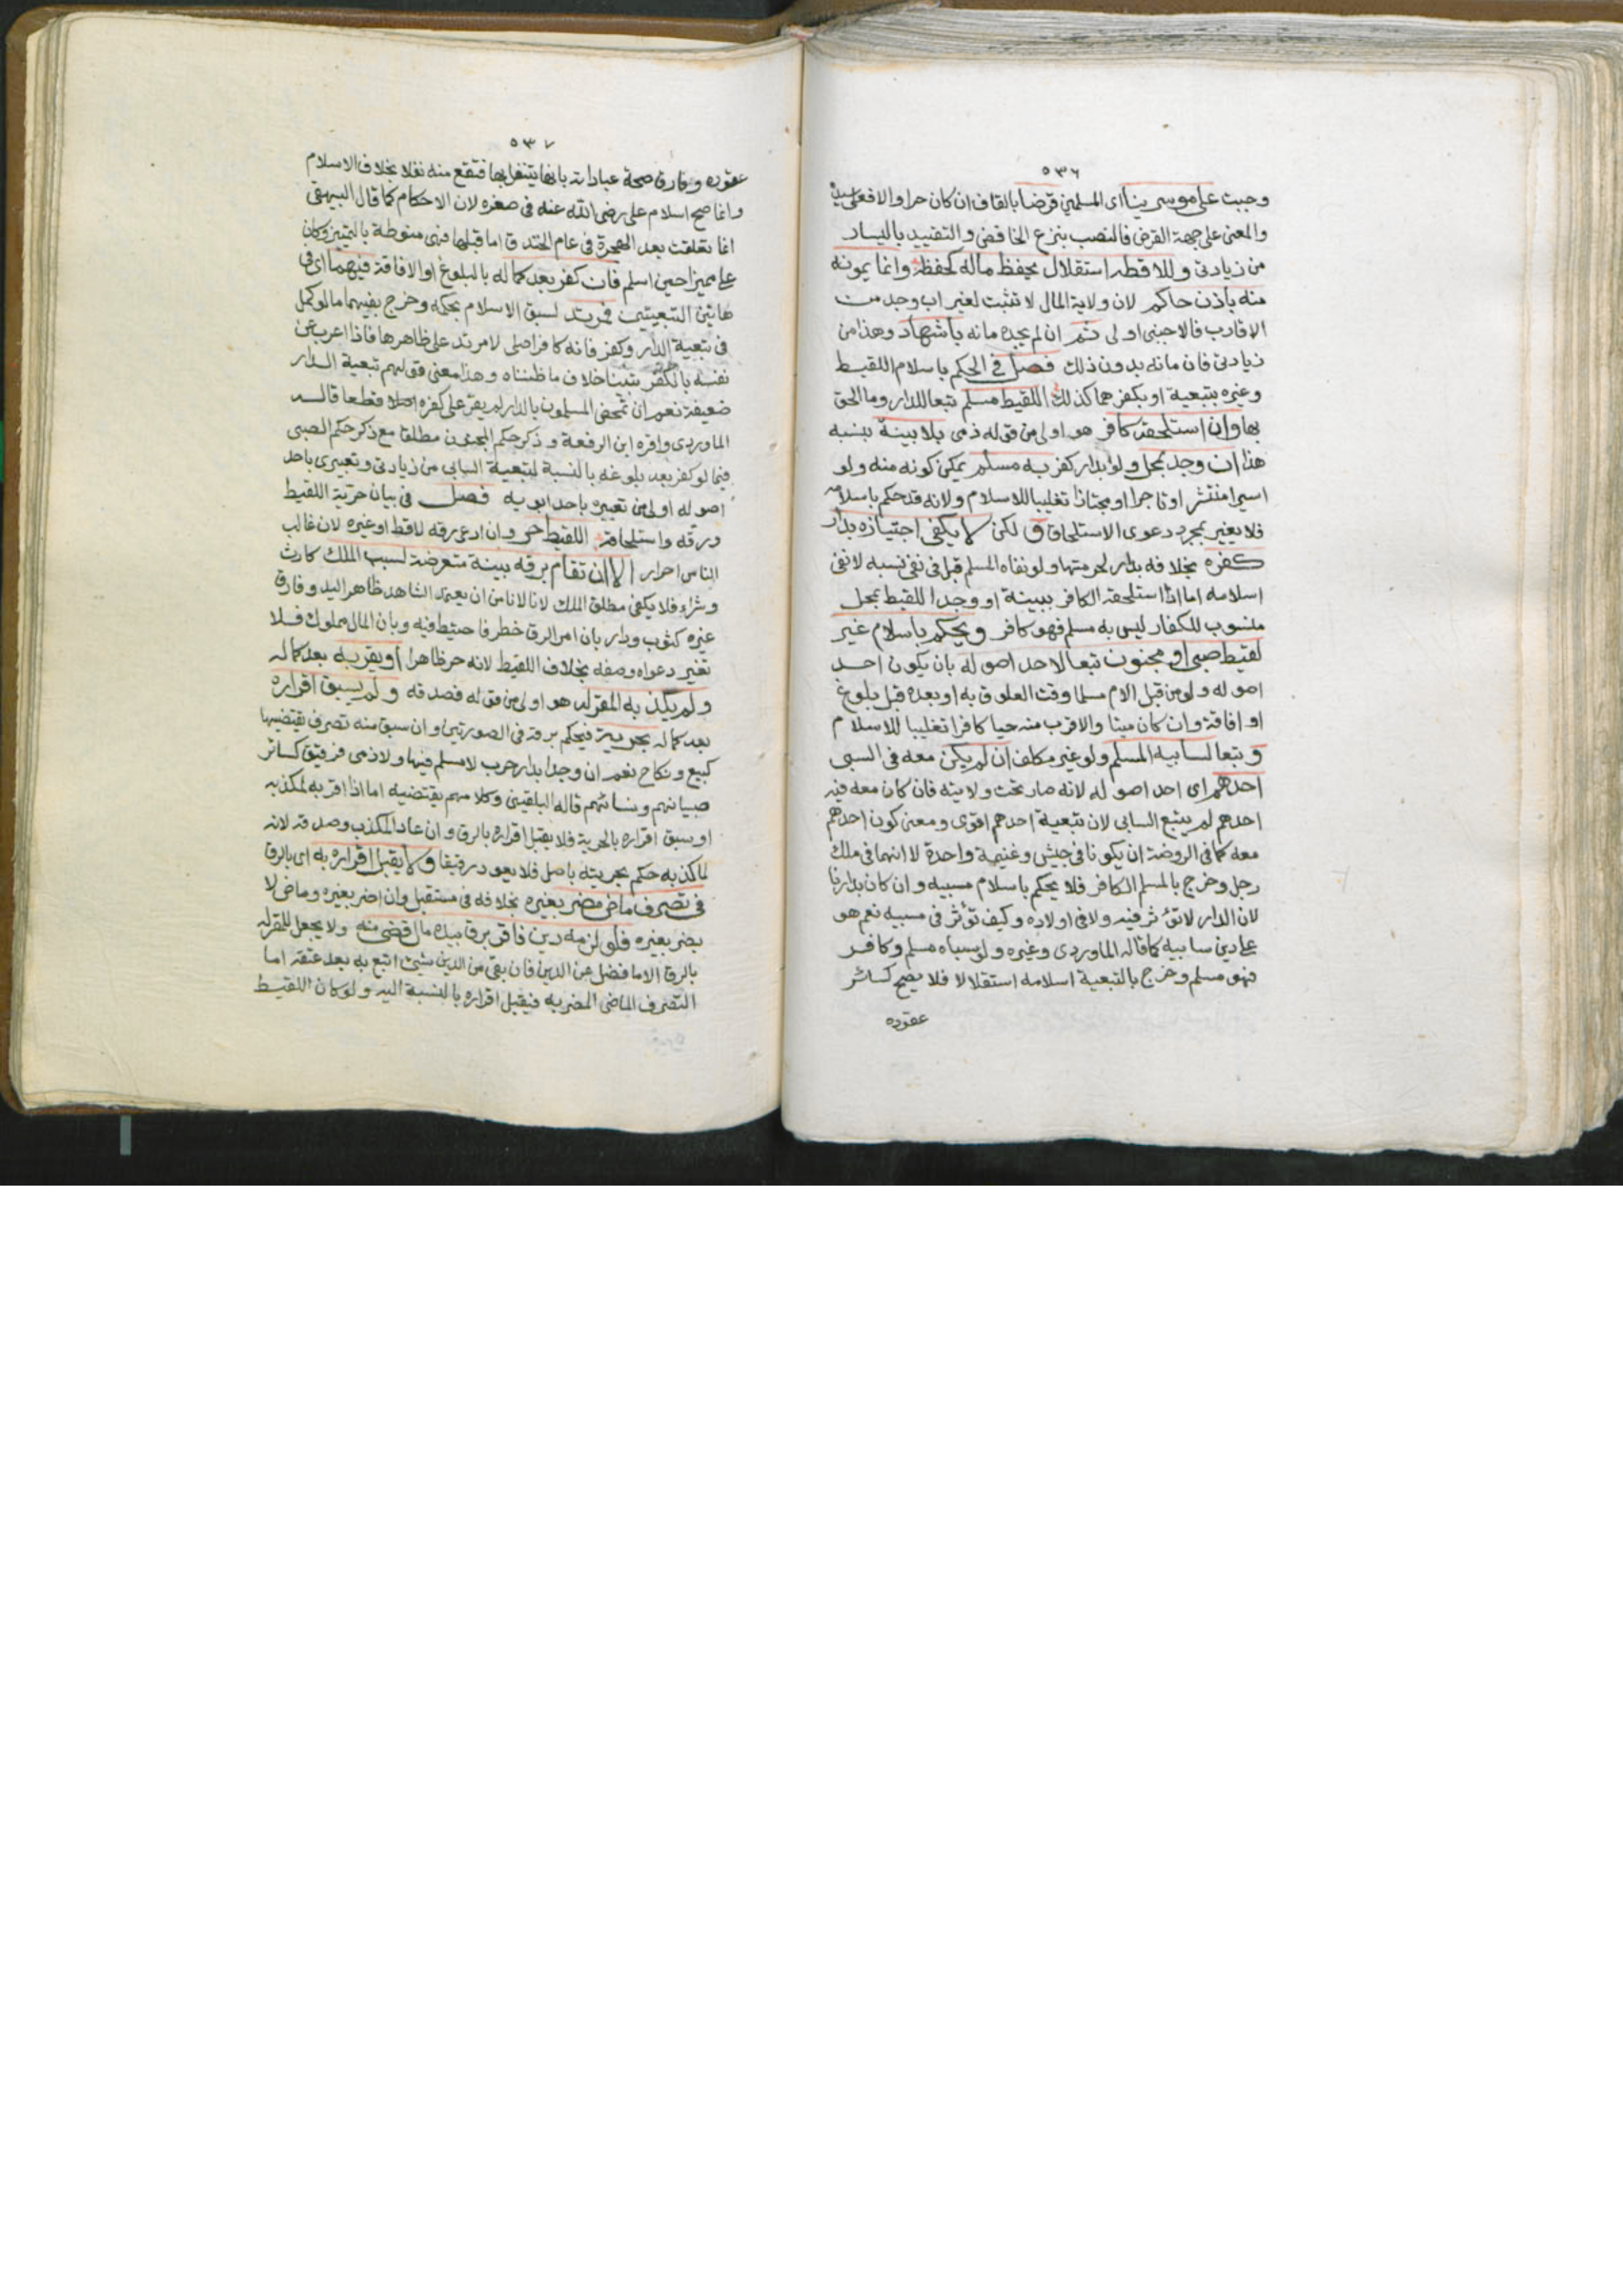 ٥٣٦
وجبت على موسرينا اى المسلمين قرضا بالقاف ان كان حرا والا فعلى سيده
والمعنى على جهة القرض فالنصب بنزع الخافض والتقييد باليسار
من زيادتى وللاقطه استقلال بحفظ ماله كحفظه وانما يمونه
منه باذن حاكم لان ولاية المال لا تثبت لغير اب وجد من
الاقارب فالاجنبى اولى ثم ان لم يجده مانه باشهاد وهذا من
زيادتى فان مانه بدون ذلك فصل فى الحكم باسلام اللقيط
وغيره بتبعية او بكفرهما كذلك اللقيط مسلم تبعا للدار وما الحق
بها وان استلحقه كافر هو اولى من قوله ذمى بلا بينة بنسبه
هذا ان وجد بمحل ولو بدار كفر به مسلم يمكن كونه منه ولو
اسيرا منتشر او تاجرا او مجتازا تغليبا للاسلام ولانه قد حكم باسلامه
فلا يغير بمجرد دعوى الاستلحاق لكن لا يكفى اجتيازه بدار
كفره بخلافه بدار لحرمتها ولو نفاه المسلم قبل فى نفى نسبه لا نفى
اسلامه اما اذا استلحقه الكافر ببينة او وجد اللقيط بمحل
منسوب للكفار ليس به مسلم فهو كافر ويحكم باسلام غير
لقيط صبى او مجنون تبعا لاحد اصوله بان يكون احد
اصوله ولو من قبل الام مسلما وقت العلوق به او بعده قبل بلوغ
او افاقة وان كان ميتا والاقرب منه حيا كافرا تغليبا للاسلام
وتبعا لسابيه المسلم ولو غير مكلف ان لم يكن معه فى السبى
احدهم اى احد اصوله لانه صار تحت ولايته فان كان معه فيه
احدهم لم يتبع السابى لان تبعية احدهم اقوى ومعنى كون احدهم
معه كما فى الروضة ان يكونا فى جيش وغنيمة واحدة لا انهما فى ملك
رجل وخرج بالمسلم الكافر فلا يحكم باسلام مسبيه وان كان بدارنا
لان الدار لا تؤثر فيه ولا فى اولاده وكيف تؤثر فى مسبيه نعم هو
على دين سابيه كما قاله الماوردى وغيره ولو سباه مسلم وكافر
فهو مسلم وخرج بالتبعية اسلامه استقلالا فلا يصح كسائر
عقوده
٥٣٧
عقوده وفارق صحة عباداته بانها يتنفل بها فتقع منه نفلا بخلاف الاسلام
وانما صح اسلام على رضى الله عنه فى صغره لان الاحكام كما قال البيهقى
انما تعلقت بعد الهجرة فى عام الخندق اما قبلها فهى منوطة بالتمييز وكان
على مميزا حين اسلم فان كفر بعد كماله بالبلوغ او الافاقة فيهما اى فى
هاتين التبعيتين فمرتد لسبق الاسلام بحكمه وخرج بفيهما ما لو كمل
فى تبعية الدار وكفر فانه كافر اصلى لا مرتد على ظاهرها فاذا اعرب عن
نفسه بالكفر تبينا خلاف ما ظنناه وهذا معنى قولهم تبعية الدار
ضعيفة نعم ان تمحض المسلمون بالدار لم يقر على كفره اصلا قطعا قاله
الماوردى واقره ابن الرفعة وذكر حكم المجنون مطلقا مع ذكر حكم الصبى
فيما لو كفر بعد بلوغه بالنسبة لتبعية السابى من زيادتى وتعبيرى باحد
اصوله اولى من تعبيره باحد ابويه فصل فى بيان حرية اللقيط
ورقه واستلحاقه اللقيط حر وان ادعى رقه لاقط او غيره لان غالب
الناس احرار الا ان تقام برقه بينة متعرضة لسبب الملك كارث
وشراء فلا يكفى مطلق الملك لانا لا نامن ان يعتمد الشاهد ظاهر اليد وفارق
غيره كثوب ودار بان امر الرق خطر فاحتيط فيه وبان المال مملوك فلا
تغير دعواه وصفه بخلاف اللقيط لانه حر ظاهرا او يقر به بعد كماله
ولم يكذبه المقر له هو اولى من قوله فصدقه ولم يسبق اقراره
بعد كماله بحرية فيحكم برقه فى الصورتين وان سبق منه تصرف يقتضيها
كبيع ونكاح نعم ان وجد بدار حرب لا مسلم فيها ولا ذمى فرقيق كسائر
صبيانهم ونسائهم قاله البلقينى وكلامهم يقتضيه اما اذا اقر به لمكذبه
او سبق اقراره بالحرية فلا يقبل اقراره بالرق وان عاد المكذب وصدقه لانه
لما كذبه حكم بحريته باصل فلا يعود رقيقا ولا يقبل اقراره به اى بالرق
فى تصرف ماض مضر بغيره بخلافه فى مستقبل وان اضر بغيره وماض لا
يضر بغيره فلو لزمه دين فاقر برق بيده مال قضى منه ولا يجعل للمقر له
بالرق الا ما فضل عن الدين فان بقى من الدين شيئ اتبع به بعد عتقه اما
التصرف الماضى المضر به فيقبل اقراره بالنسبة اليه ولو كان اللقيط